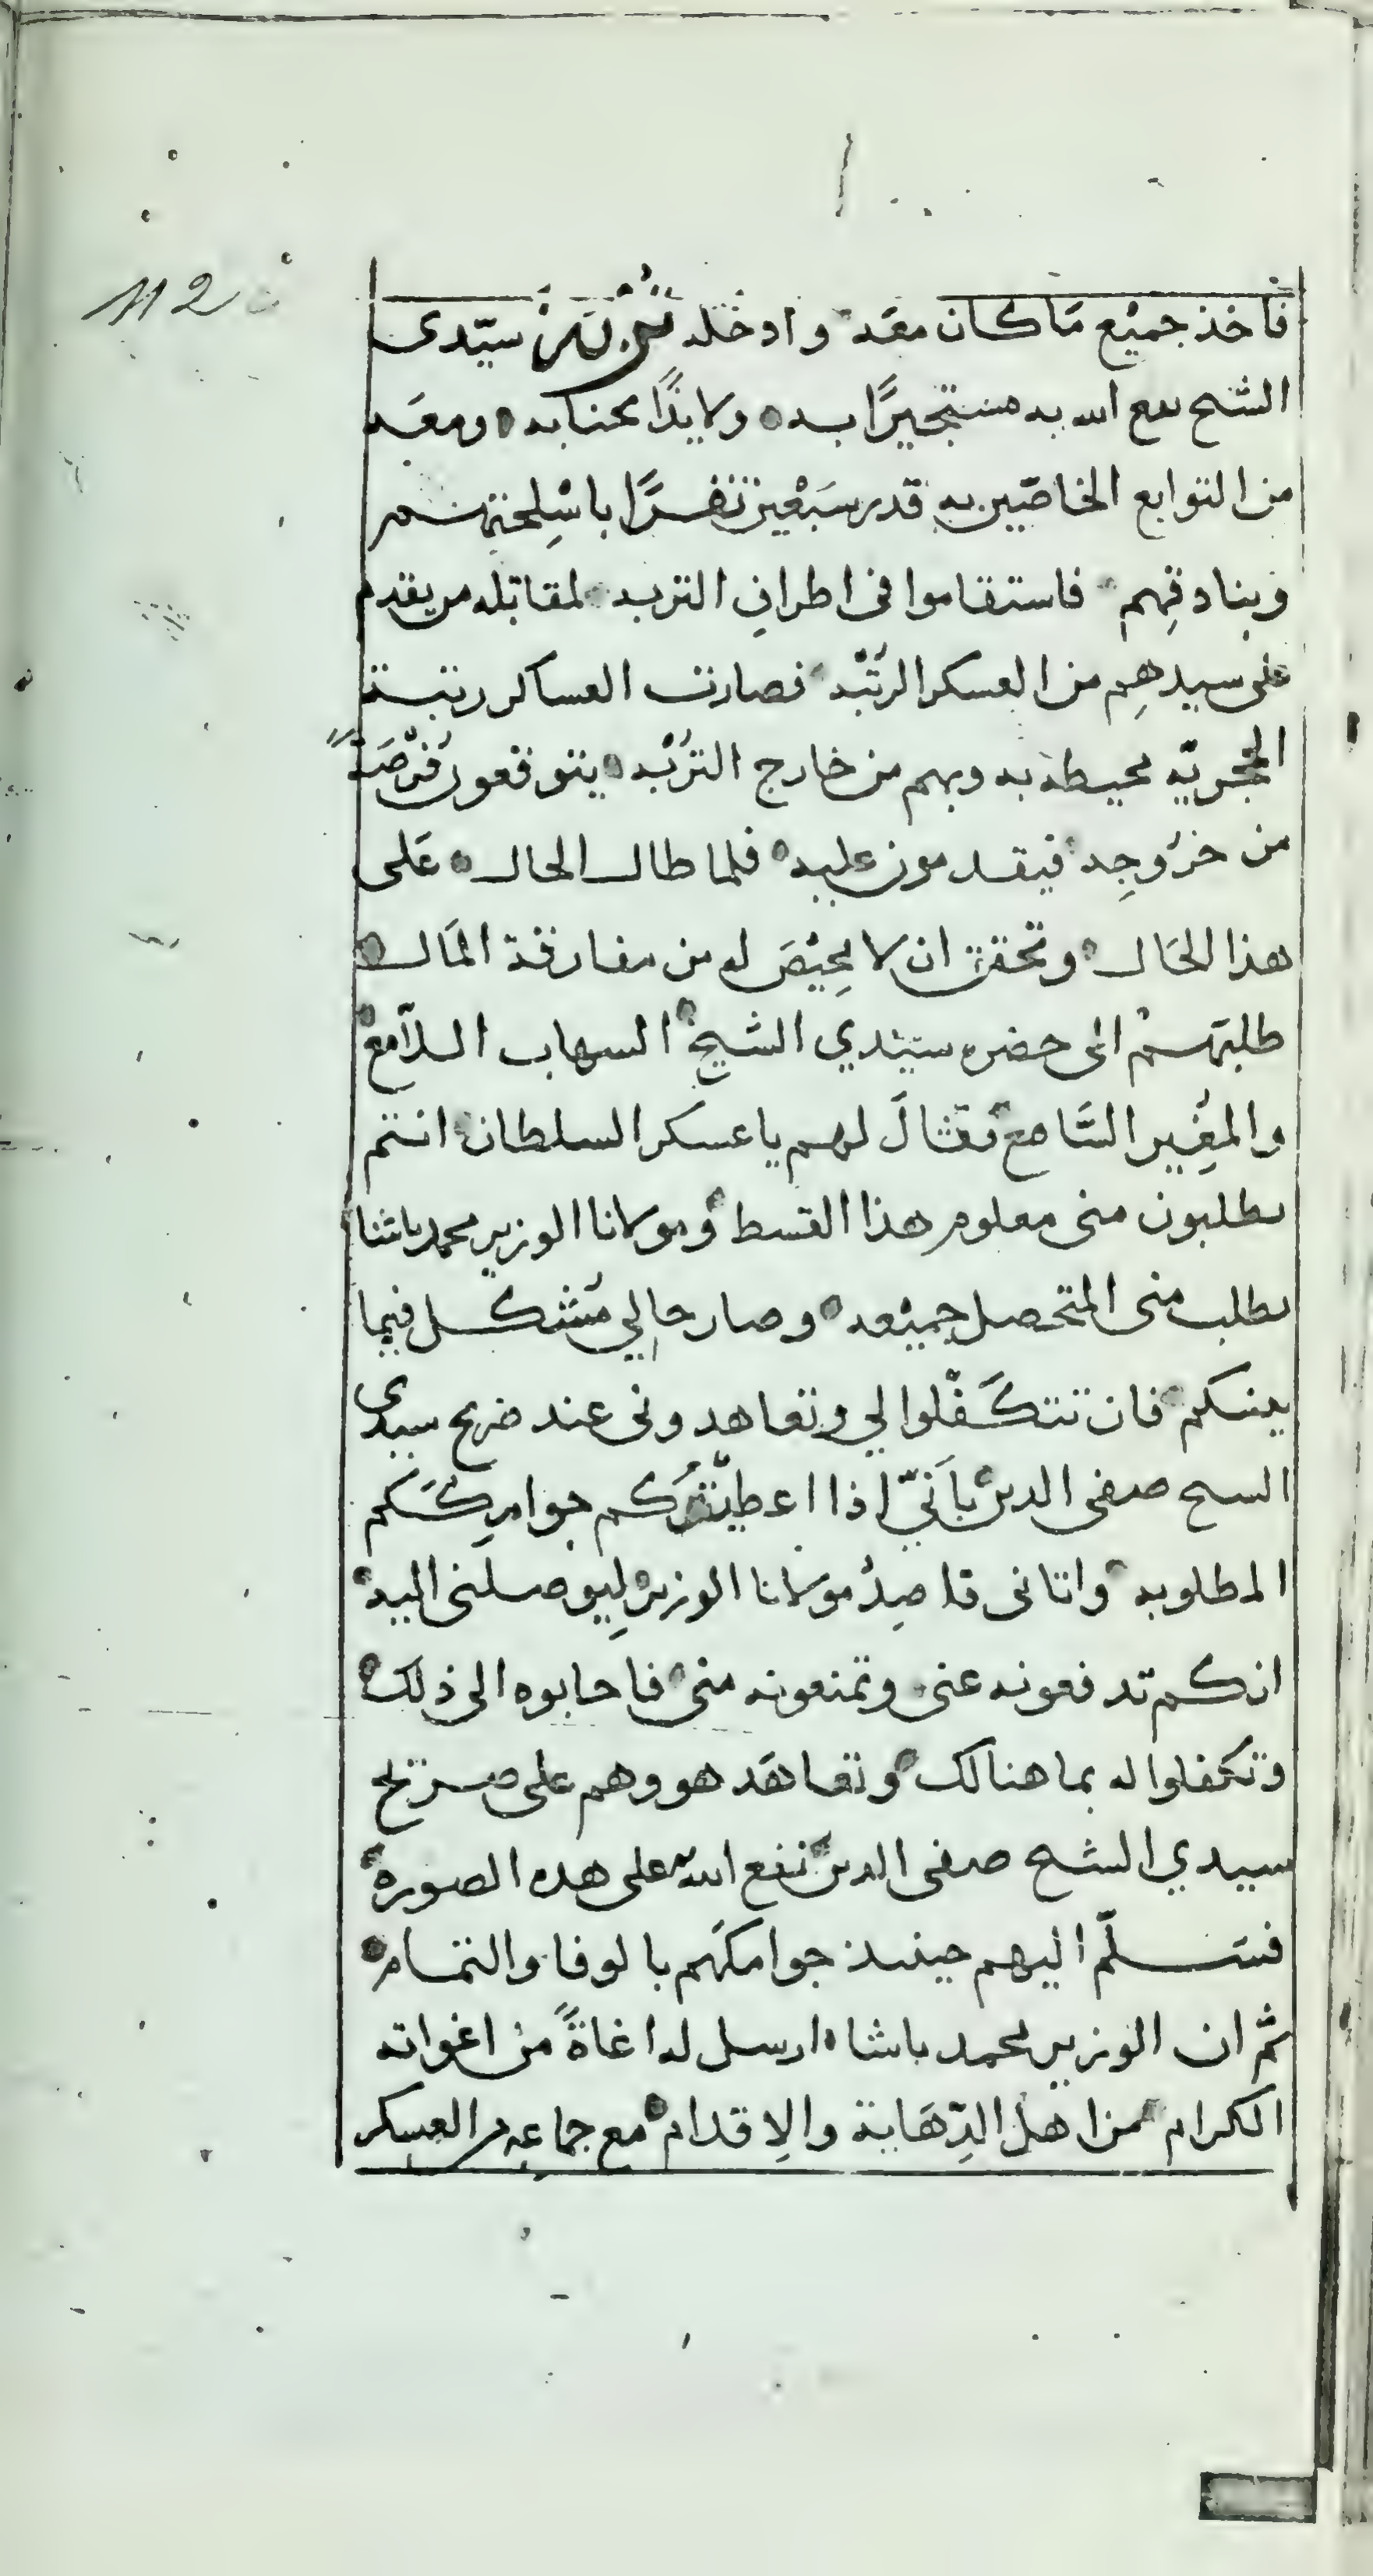 112
فاخذ جميْع مَا كان معَه وادخله تُرْبَة سيّدى
الشيح نفع الله به مستجيرًا به ولايذًا بجنابه ومعَه
من التوابع الخاصّين به قدر سَبْعين نفرًا باسْلِحتهم
وبنادقِهم فاستقاموا فى اطراف التربه لمقاتله من يقدم
على سيدهِم من العسكر الرتْبه فصارت العساكر رتبة
الحجريّه محيطه به وبهم من خارج الترْبه يتوقعون فُرْصَةً
من خرُوجِه فيقدمون عليه فلما طال الحال عَلى
هذا الحَال وتحقق ان لا محِيْصَ له من مفارقة المَال
طلبَهمْ الى حضره سيّدي الشيخ السهاب اللاّمع
والمغِير السَّامع فقَالَ لهم يا عسكر السلطان انتم
تطلبون منى معلوم هذا القسط ومولانا الوزير محمد باشا
يطلب منى المتحصل جميْعه وصار حالِي مُشكل فيما
بينكم فان تتكَفّلوا لي وتعاهدونى عند ضريح سيدى
السح صفى الدين بأنّي اذا اعطيْتُكم جوامِركَكم
المطلوبه واتانى قاصِدُ مولانا الوزير لِيوصلنى اليه
انكم تدفعونه عنى وتمنعونه منى فاجابوه الى ذلك
وتكفلوا له بما هنالك وتعاهَد هو وهم على ضريح
سيدي الشيح صفى الدين نفع الله به على هذه الصوره
فسَلّم اليهم حينئذ جوامكَهم بالوفا والتمام
ثم ان الوزير محمد باشا ارسل له اغاةً من اغواته
الكرام من اهل الدِّهَاية والاِقدام مع جماعه من العسكر